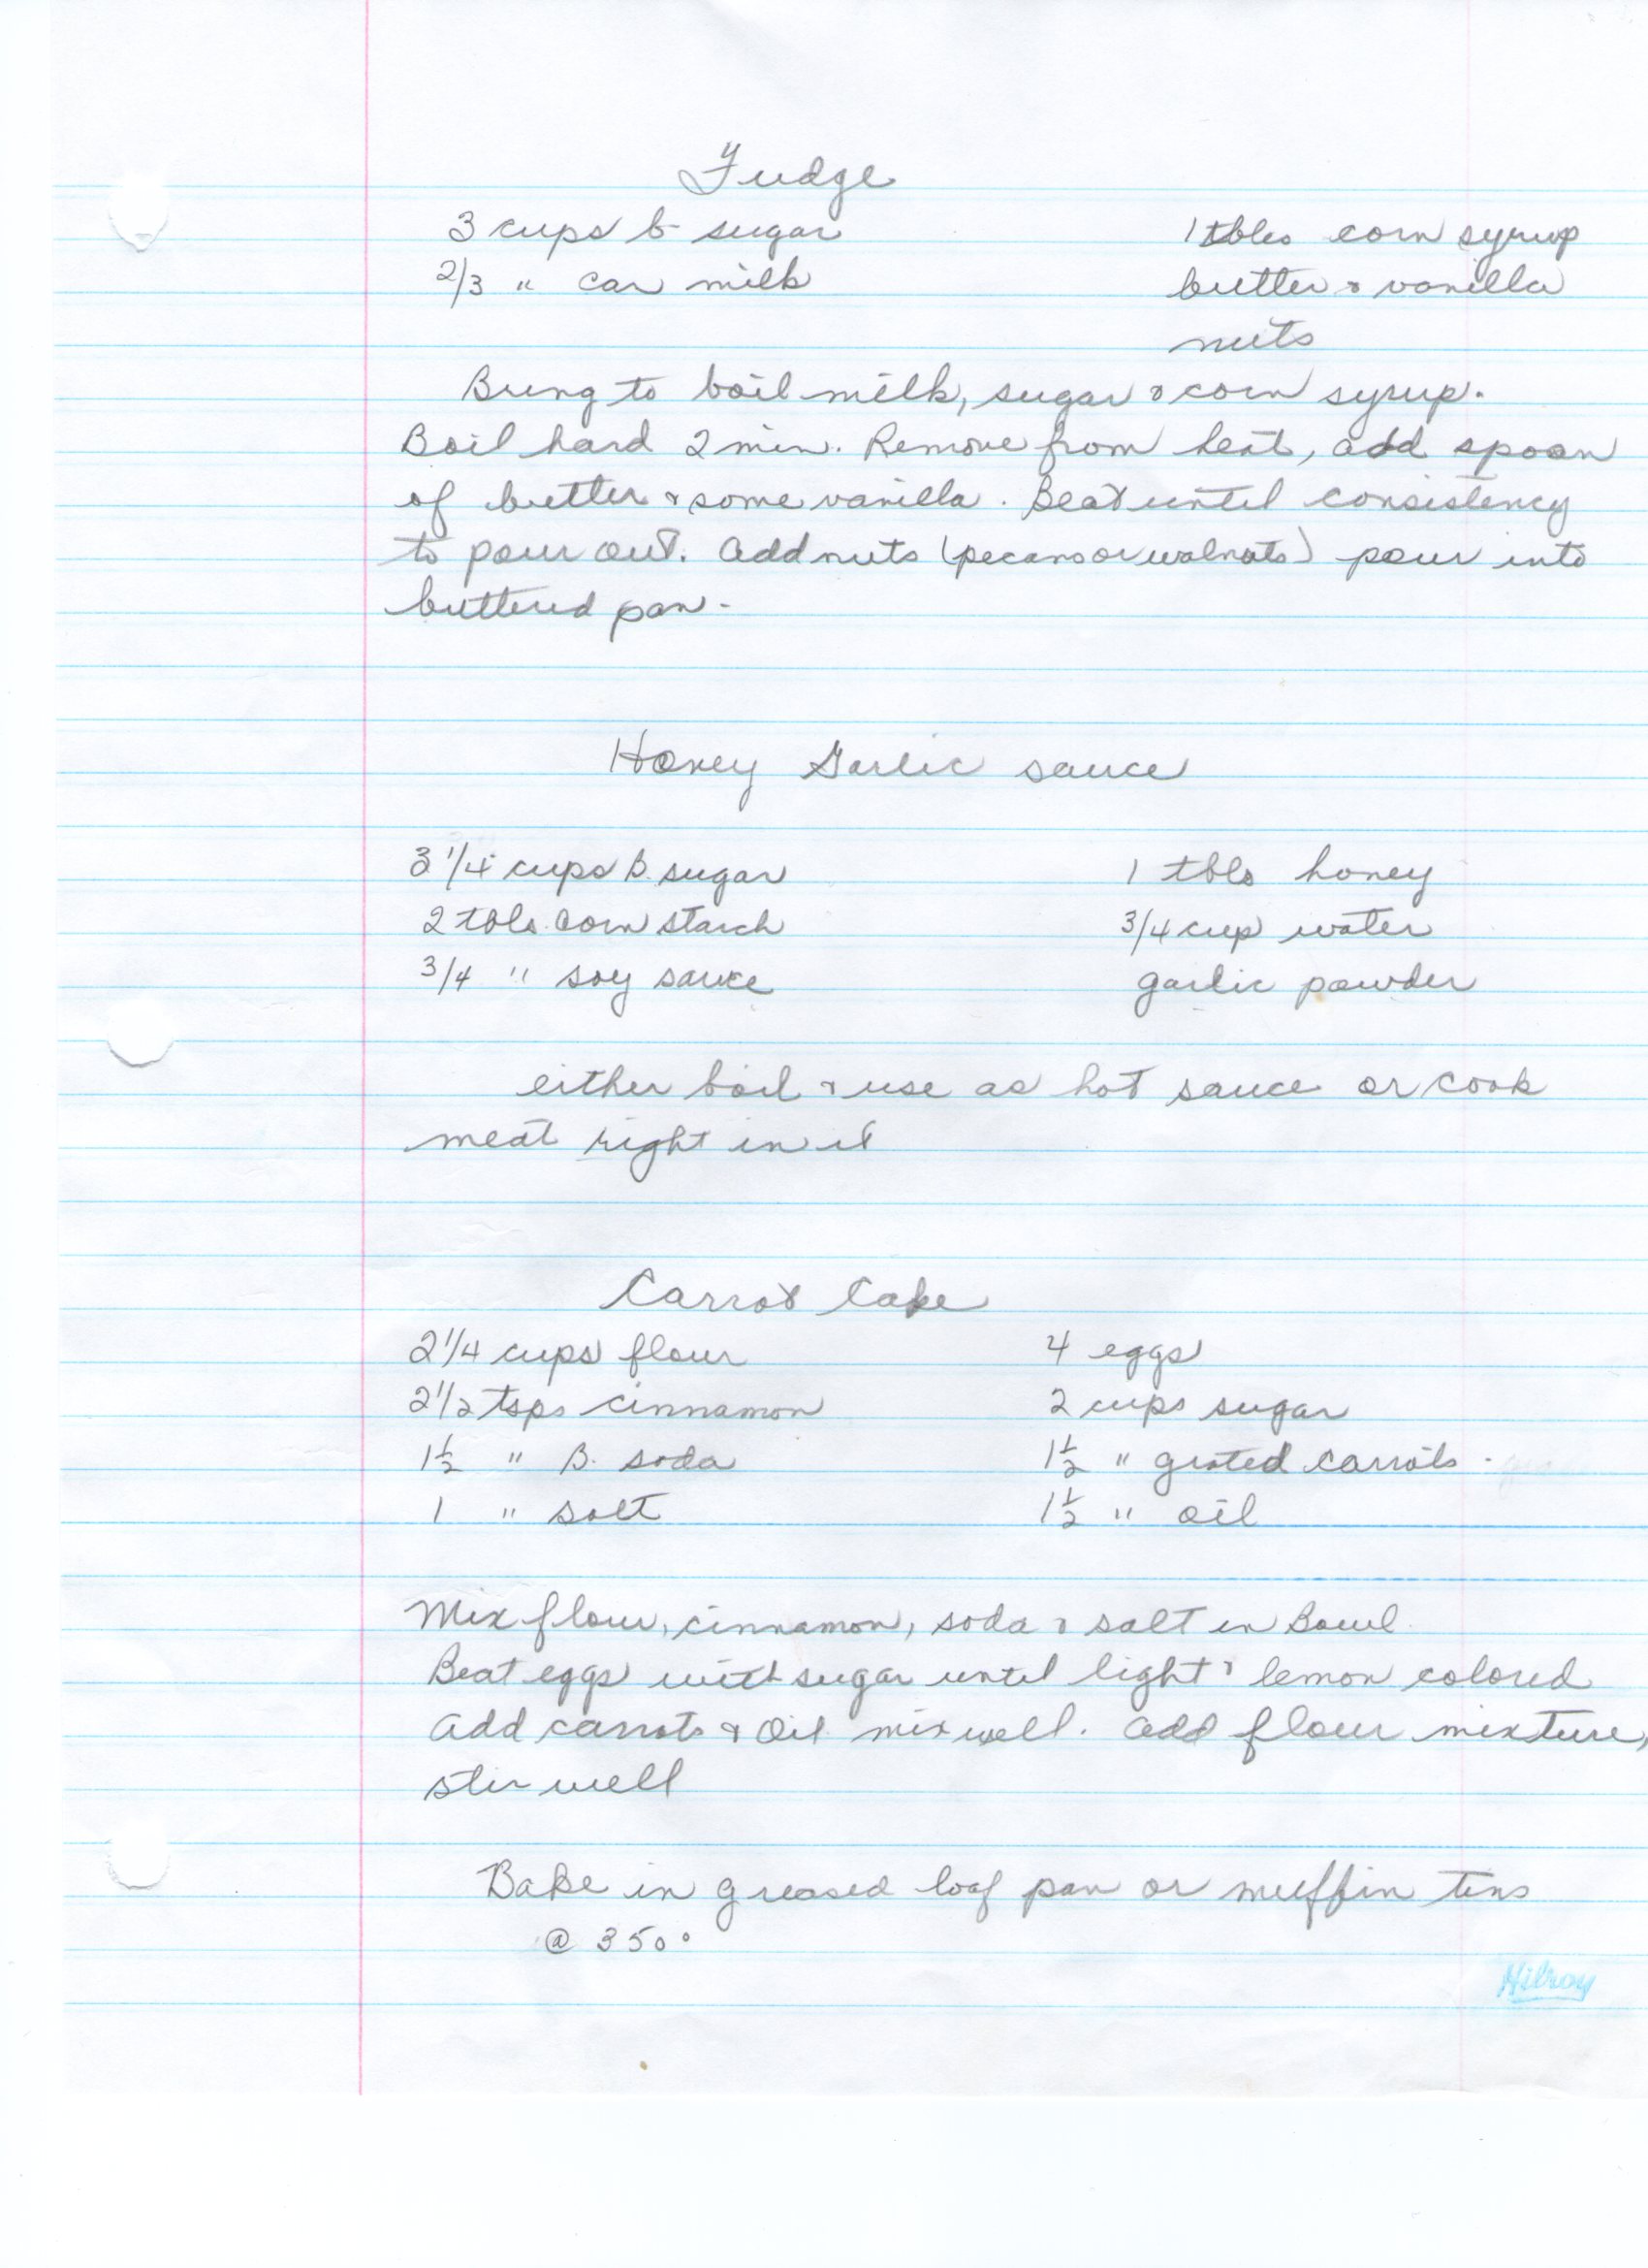 Fudge
3 cups b- sugar 1 tbles corn syrup
2/3 " can milk butter & vanilla
nuts
Bring to boil milk, sugar & corn syrup.
Boil hard 2 min. Remove from heat, add spoon
of butter & some vanilla. Beat until consistency
to pour out. Add nuts (pecans or walnuts) pour into
buttered pan.
Honey Garlic sauce
3 1/4 cups B. sugar 1 tbls honey
2 tbls. corn starch 3/4 cup water
3/4 " soy sauce garlic powder
either boil & use as hot sauce or cook
meat right in it
Carrot Cake
2 1/4 cups flour 4 eggs
2 1/2 tsps cinnamon 2 cups sugar
1 1/2 " B. soda 1 1/2 " grated carrots.
1 " salt 1 1/2 " oil
Mix flour, cinnamon, soda & salt in Bowl
Beat eggs with sugar until light & lemon colored
add carrots & oil mix well. add flour mixture,
stir well
Bake in greased loaf pan or muffin tins
@ 350°
Hilroy